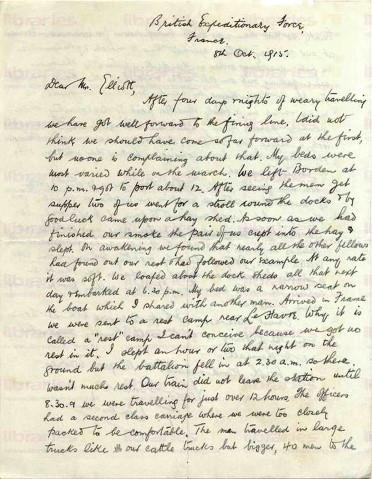 British Expeditionary Force,
France.
8th Oct. 1915.
Dear Mr. Ellicott,
After four days & nights of weary travelling
we have got well forward to the firing line. I did not
think we should have come so far forward at the first,
but no one is complaining about that. My beds were
most varied while on the march. We left Bordon at
10 p.m. & got to port about 12. After seeing the men get
supper two of us went for a stroll round the docks & by
good luck came upon a hay shed. As soon as we had
finished our smoke the pair of us crept into the hay &
slept. On awakening we found that nearly all the other fellows
had found out our rest & had followed our example. At any rate
it was soft. We loafed about the dock sheds all that next
day & embarked at 6.30 p.m. My bed was a narrow seat on
the boat which I shared with another man. Arrived in France
we were sent to a rest camp near Le Havre. Why it is
called a "rest" camp I can't conceive because we got no
rest in it. I slept an hour or two that night on the
ground but the battalion fell in at 2.30 a.m. so there
wasn't much rest. Our train did not leave the station until
8.30. & we were travelling for just over 12 hours. The officers
had a second class carriage where we were too closely
packed to be comfortable. The men travelled in large
trucks like our cattle trucks but bigger, 40 men to the
libraries